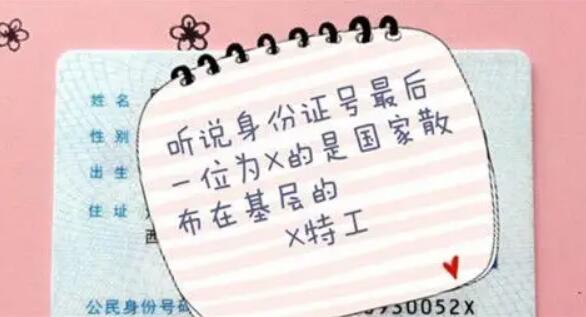 姓名
听说身份证号最后
性别
一位为X的是国家散
出生
布在基层的
住址
X特工
公民身份号码
930052X